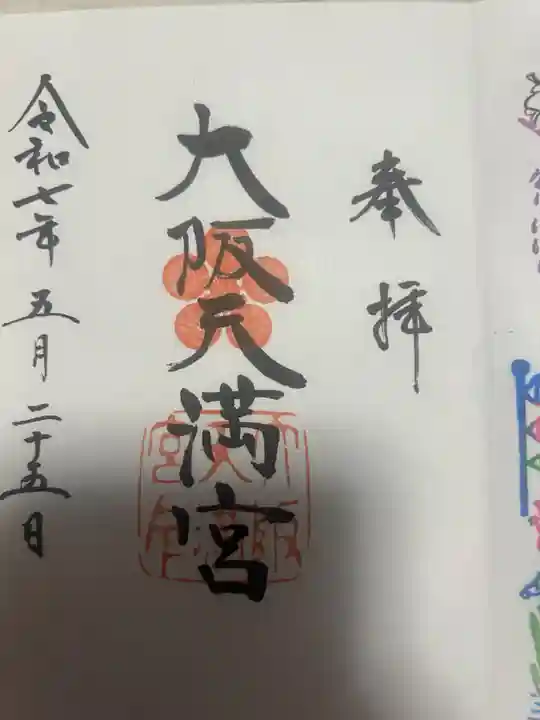 奉拝
大阪天満宮
令和七年五月二十五日